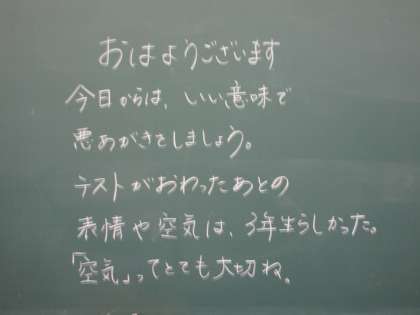 おはようございます
今日からは、いい意味で
悪あがきをしましょう。
テストがおわったあとの
表情や空気は、3年生らしかった。
「空気」ってとても大切ね。